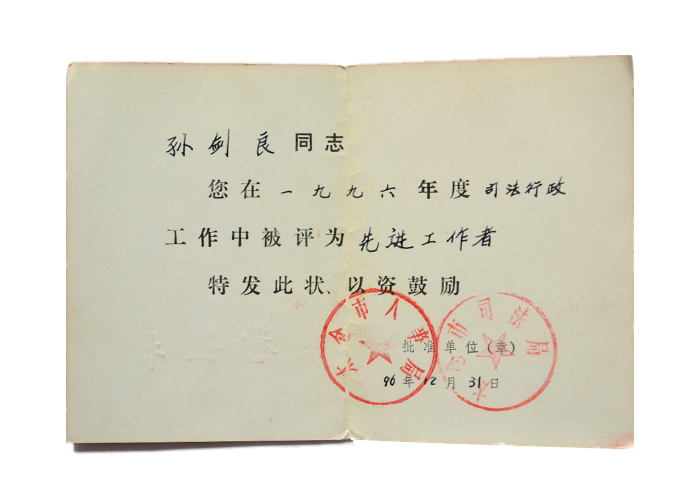 孙剑良同志
您在一九九六年度司法行政
工作中被评为先进工作者
特发此状、以资鼓励
批准单位(章)
96年12月31日
市人事局
市司法局